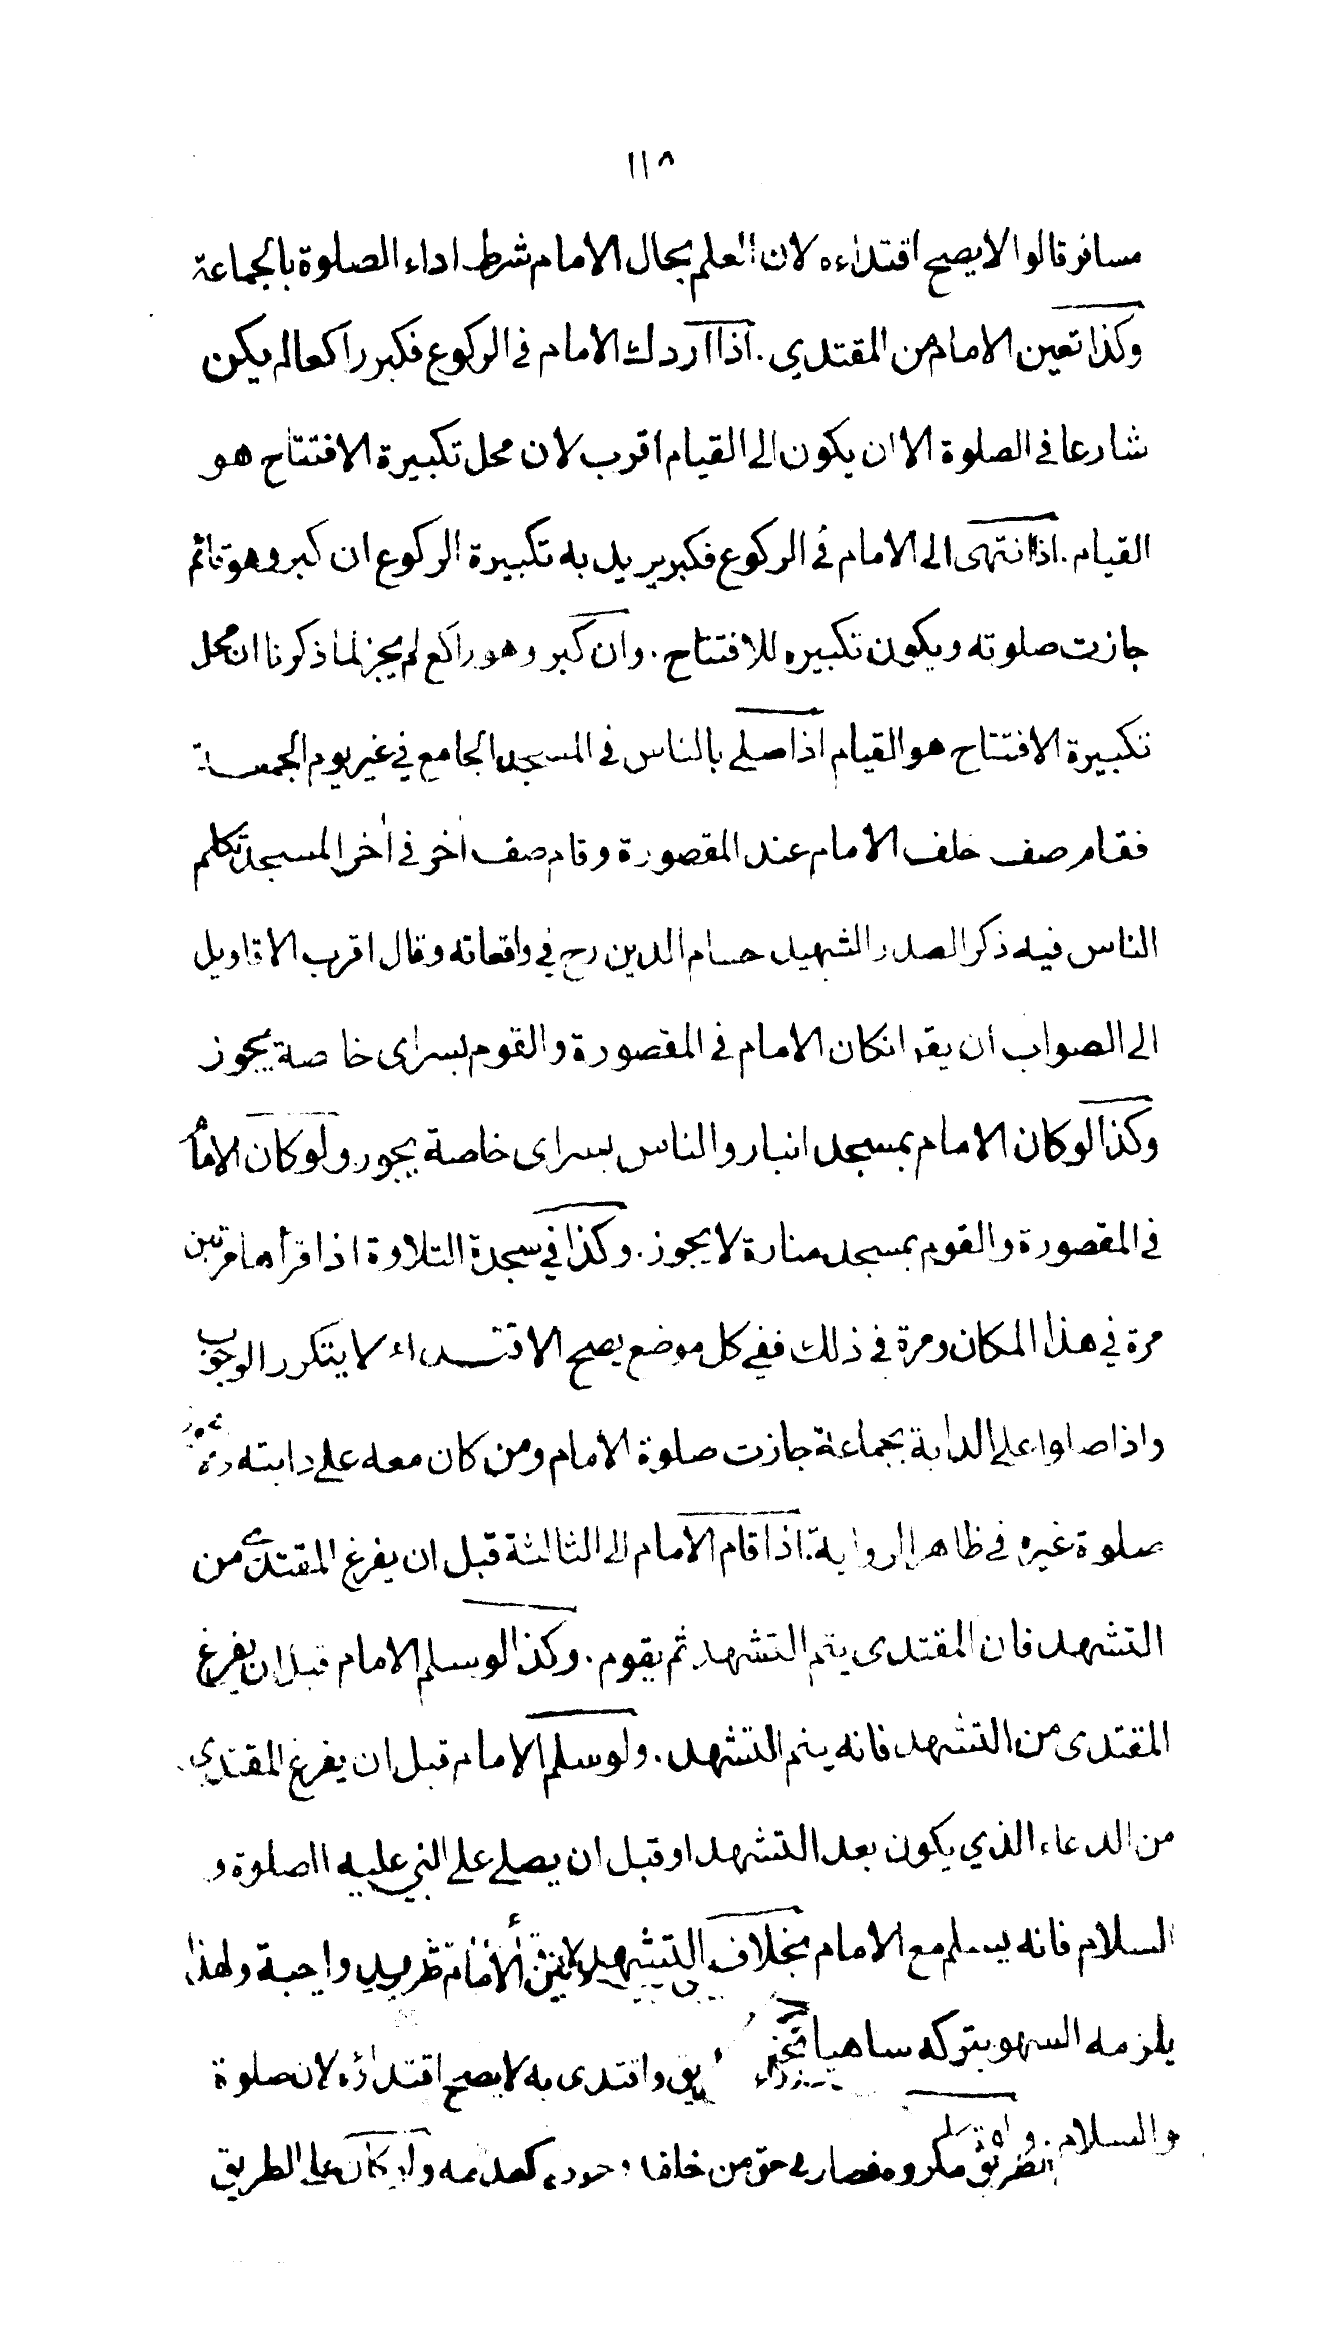 ١١٨
مسافر قالوا لا يصح اقتداءه لان العلم بحال الامام شرط اداء الصلوة بالجماعة
وكذا تعين الامام من المقتدي . اذا اردك الامام فى الركوع فكبر راكعا لم يكن
شارعا فى الصلوة الا ان يكون الى القيام اقرب لان محل تكبيرة الافتتاح هو
القيام . اذا انتهى الى الامام فى الركوع فكبر يريد به تكبيرة الركوع ان كبر وهو قائم
جازت صلوته ويكون تكبيره للافتتاح . وان كبر وهو راكع لم يجز لما ذكرنا ان محل
تكبيرة الافتتاح هو القيام اذا صلى بالناس فى المسجد الجامع في غير يوم الجمعة
فقام صف خلف الامام عند المقصورة وقام صف أخر فى أخر المسجد تكلم
الناس فيه ذكر الصدر الشهيد حسام الدين رح في واقعاته وقال اقرب الاقاويل
الى الصواب ان يقر انكان الامام فى المقصورة والقوم بسراى خاصة يجوز
وكذا لو كان الامام بمسجد انبار والناس بسراى خاصة يجوز ولو كان الامام
فى المقصورة والقوم بمسجد منارة لا يجوز . وكذا في سجدة التلاوة اذا قرأها مرتين
مرة في هذا المكان ومرة فى ذلك ففي كل موضع يصح الاقتداء لا يتكرر الوجوب
واذا صلوا على الدابة بجماعة جازت صلوة الامام ومن كان معه على دابته
صلوة غيره فى ظاهر الرواية . اذا قام الامام الى الثالثة قبل ان يفرغ المقتدى من
التشهد فان المقتدى يتم التشهد ثم يقوم . وكذا لو سلم الامام قبل ان يفرغ
المقتدى من التشهد فانه يتم التشهد . ولو سلم الامام قبل ان يفرغ المقتدي
من الدعاء الذي يكون بعد التشهد او قبل ان يصلى على النبي عليه الصلوة و
السلام فانه يسلم مع الامام بخلاف التشهد واجبة ولهذا
يلزمه السهو بتركه ساهيا واقتدى به لا يصح اقتداؤه لان صلوة
والسلام . مكروه فصار في حق من خلفه وجوده كعدمه ولو كان على الطريق